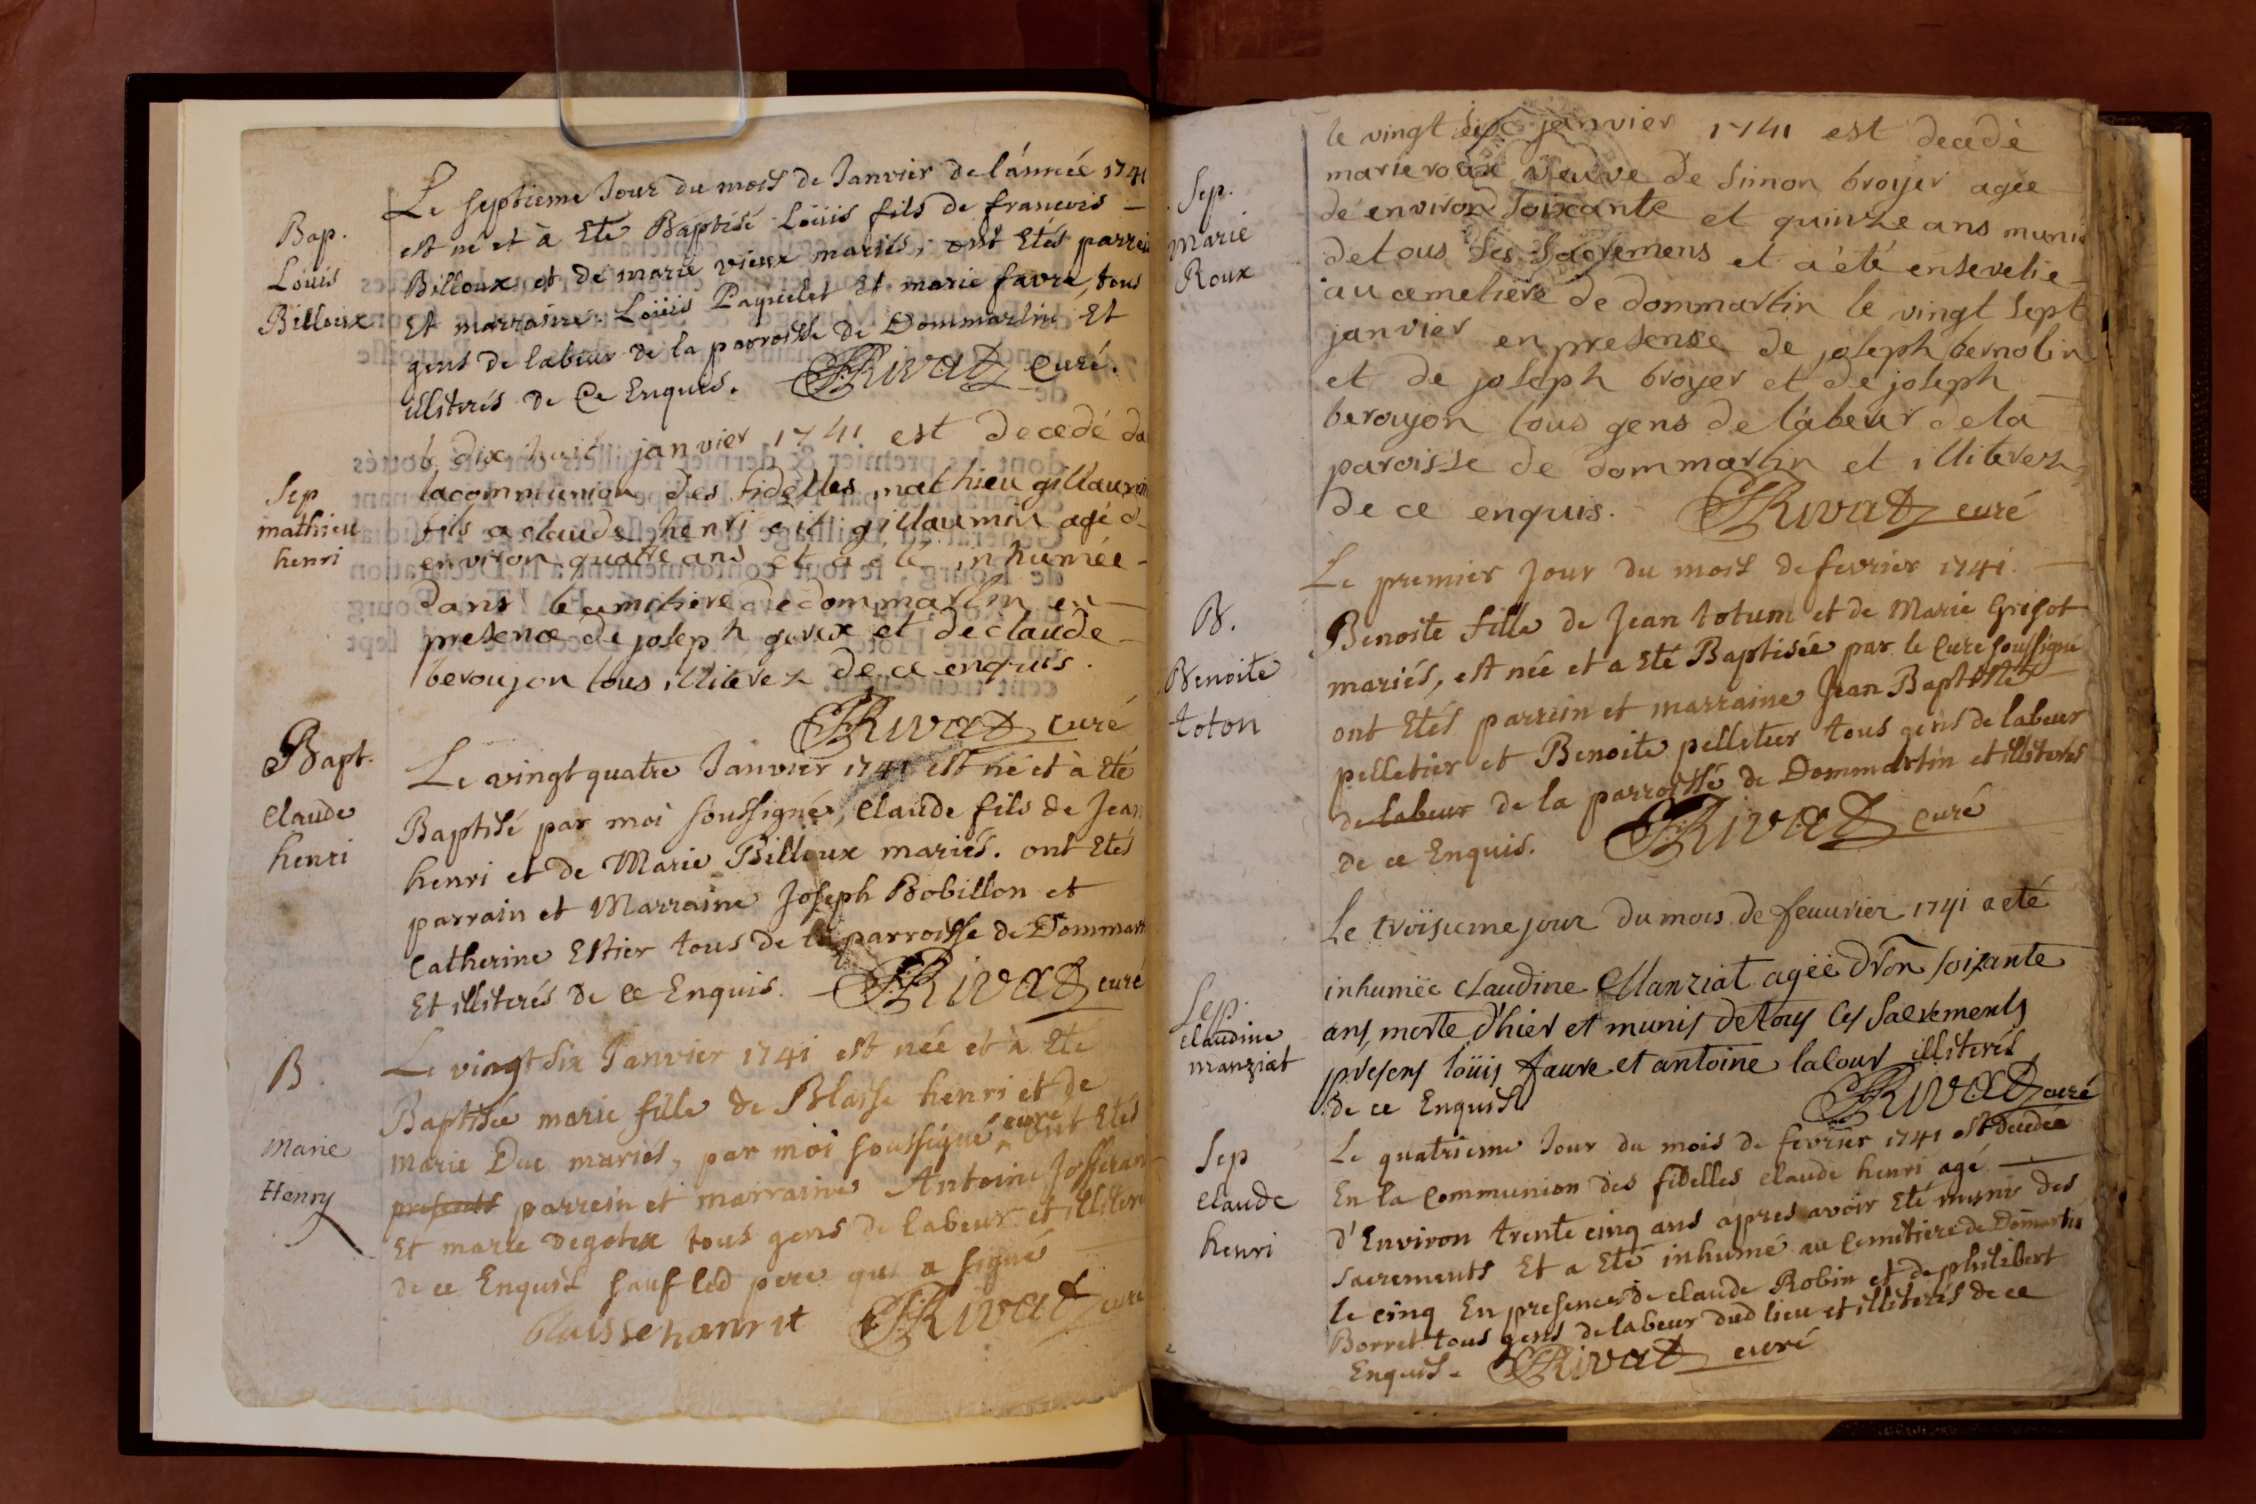 Bap.
Loüis
Billoux
Le septieme Jour du mois de Janvier de l'année 1741
est né et à Eté Baptisé Loüis fils de francois
Billoux et de marie vieux mariés, ont Etés parrein
Et marraine Loüis Paquelet Et marie favre, tous
gens de labeur de la parroisse de Dommartin Et
illiterés de Ce Enquis. Rivat Curé.
Sep
mathieu
henri
le dix huit janvier 1741 est decedé da
lacommunion des fidelles mathieu gillaumin
fils a claude henri dit gillaumin agé d
environ quatre ans et a eté inhumée
dans le cemitiere de dommartin en
presence de joseph gorex et de claude
beroujon tous illiterez de ce enquis.
Rivat curé
Bapt.
Claude
henri
Le vingt quatre Janvier 1741 est né et à Eté
Baptisé par moi soussigné, Claude fils de Jean
henri et de Marie Billoux mariés. ont Etés
parrain et Marraine Joseph Bobillon et
Catherine Estier tous de la parroisse de Dommart
Et illiterés de ce Enquis. Rivat curé
B.
Marie
Henry
Le vingt six Janvier 1741 est née et à Eté
Baptisée marie fille de Blaise henri et de
Marie Duc mariés, par moi soussigné curé ont Etés
presents parrein et marraine Antoine Josseran
Et marie Degotex tous gens de labeur et illiteré
de ce Enquis sauf led pere qui a signé
blaisse hanrit Rivat curé
Sep.
Marie
Roux
le vingt six janvier 1741 est decedé
marie roux veuve de simon broyer agée
de environ soixante et quinze ans munie
de tous ses sacremens et a été ensevelie
au cemetiere de dommartin le vingt sept
janvier en presense de joseph bernolin
et de joseph broyer et de joseph
beroujon tous gens de labeur de la
paroisse de dommartin et illiterez
de ce enquis. Rivat curé
B.
Benoite
toton
Le premier Jour du mois de fevrier 1741.
Benoite fille de Jean totum et de Marie Grisot
mariés, est née et a Eté Baptisée par le Curé soussigné
ont Etés parrein et marraine Jean Baptiste
pelletier et Benoite pelletier tous gens de labeur
de labeur de la parroisse de Dommartin et illiterés
de ce Enquis. Rivat curé
Sep.
claudine
manziat
Le troisieme jour du mois de feuurier 1741 a eté
inhumëe claudine Manziat agée d'ron soixante
ans, morte d'hier et munis de tous les sacrements
presens loüis faure et antoine lalour illiterés
de ce Enquis Rivat curé
Sep
claude
henri
Le quatrieme Jour du mois de fevrier 1741 est decedée
En la Communion des fidelles claude henri agé
d'Environ trente cinq ans apres avoir Eté munir des
sacrements Et a Eté inhumé au Cemitiere de Dommartin
le cinq En presence de claude Robin et de philibert
Borret tous gens de labeur dud lieu et illiterés de ce
Enquis. Rivat curé